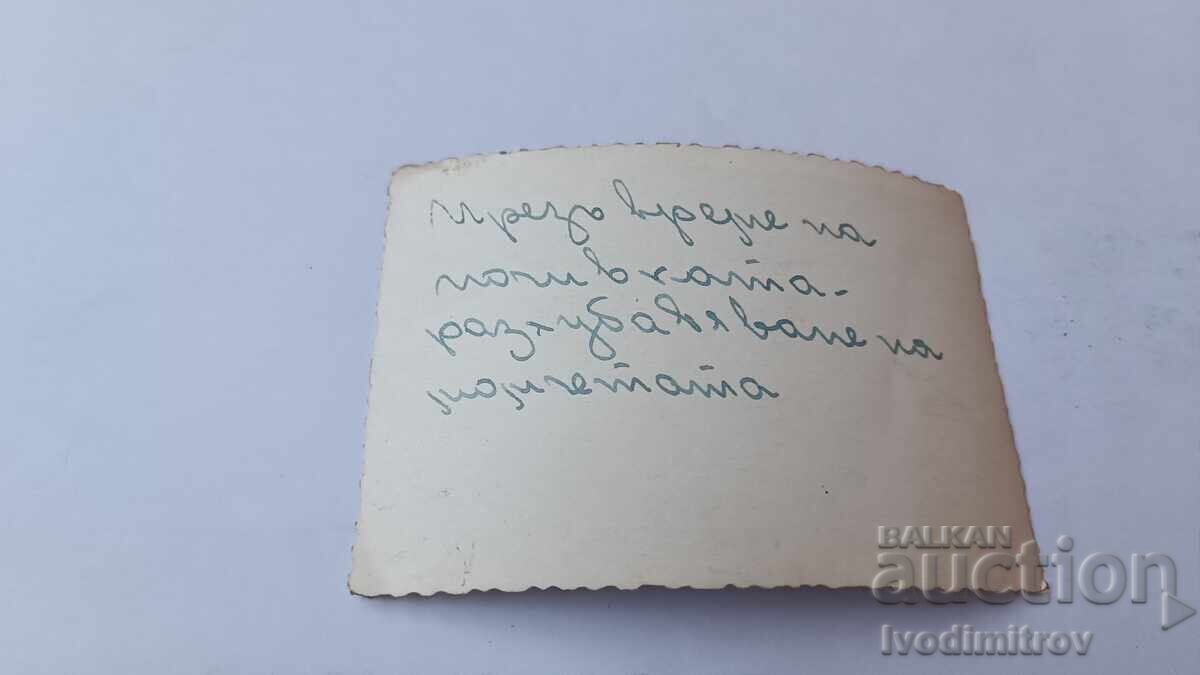 Презъ време на
почивката-
разхубавяване на
момчетата
BALKAN
auction
Ivodimitrov